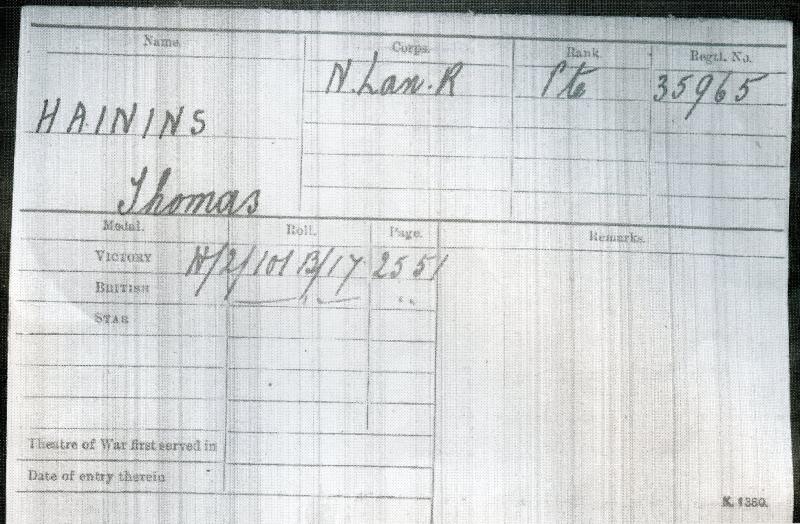 Name.
Corps.
Rank.
Regtl. No.
N. Lan. R
Pte
35965
HAININS
Thomas
Medal.
Roll.
Page.
Remarks.
VICTORY
H/2/101 B/17
2551
BRITISH
" "
STAR
Theatre of War first served in
Date of entry therein
K. 1380.